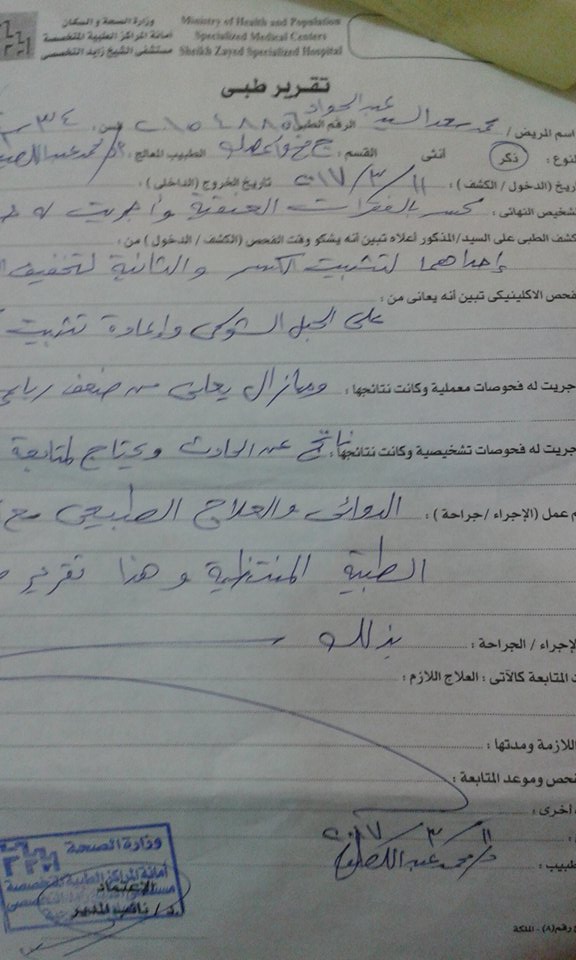 وزارة الصحة و السكان
أمانة المراكز الطبية المتخصصة
مستشفى الشيخ زايد التخصصى
Ministry of Health and Population
Specialized Medical Centers
Sheikh Zayed Specialized Hospital
تقرير طبى
اسم المريض / محمد سعد السيد عبد الجواد الرقم الطبى
نوع : ذكر أنثى القسم : الطبيب المعالج : د/ محمد عبد
ريخ (الدخول / الكشف) : ١١ / ٣ / ٢٠١٧ تاريخ الخروج (الداخلى) :
شخيص النهائى : كسر بالفقرات العنقية وأجريت له
كشف الطبى على السيد/المذكور أعلاه تبين أنه يشكو وقت الفحص (الكشف / الدخول ) من :
إحداهما لتثبيت الكسر والثانية لتخفيف
فحص الاكلينيكى تبين أنه يعانى من :
على الحبل الشوكى وإعادة تثبيت
جريت له فحوصات معملية وكانت نتائجها : ومازال يعانى من ضعف رباعى
جريت له فحوصات تشخيصية وكانت نتائجها : ناتج عن الحادث ويحتاج لمتابعة
م عمل (الإجراء /جراحة ) : الدوائى والعلاج الطبيعى مع
الطبية المنتظمة وهذا تقرير
لإجراء / الجراحة : بذلك
ت المتابعة كالآتى : العلاج اللازم :
اللازمة ومدتها :
حص وموعد المتابعة :
أخرى :
١١ / ٣ / ٢٠١٧
طبيب : د/ محمد عبد
وزارة الصحة
أمانة المراكز الطبية المتخصصة
الإعتماد
د / نائب المدير
رقم (٨) - الملكة